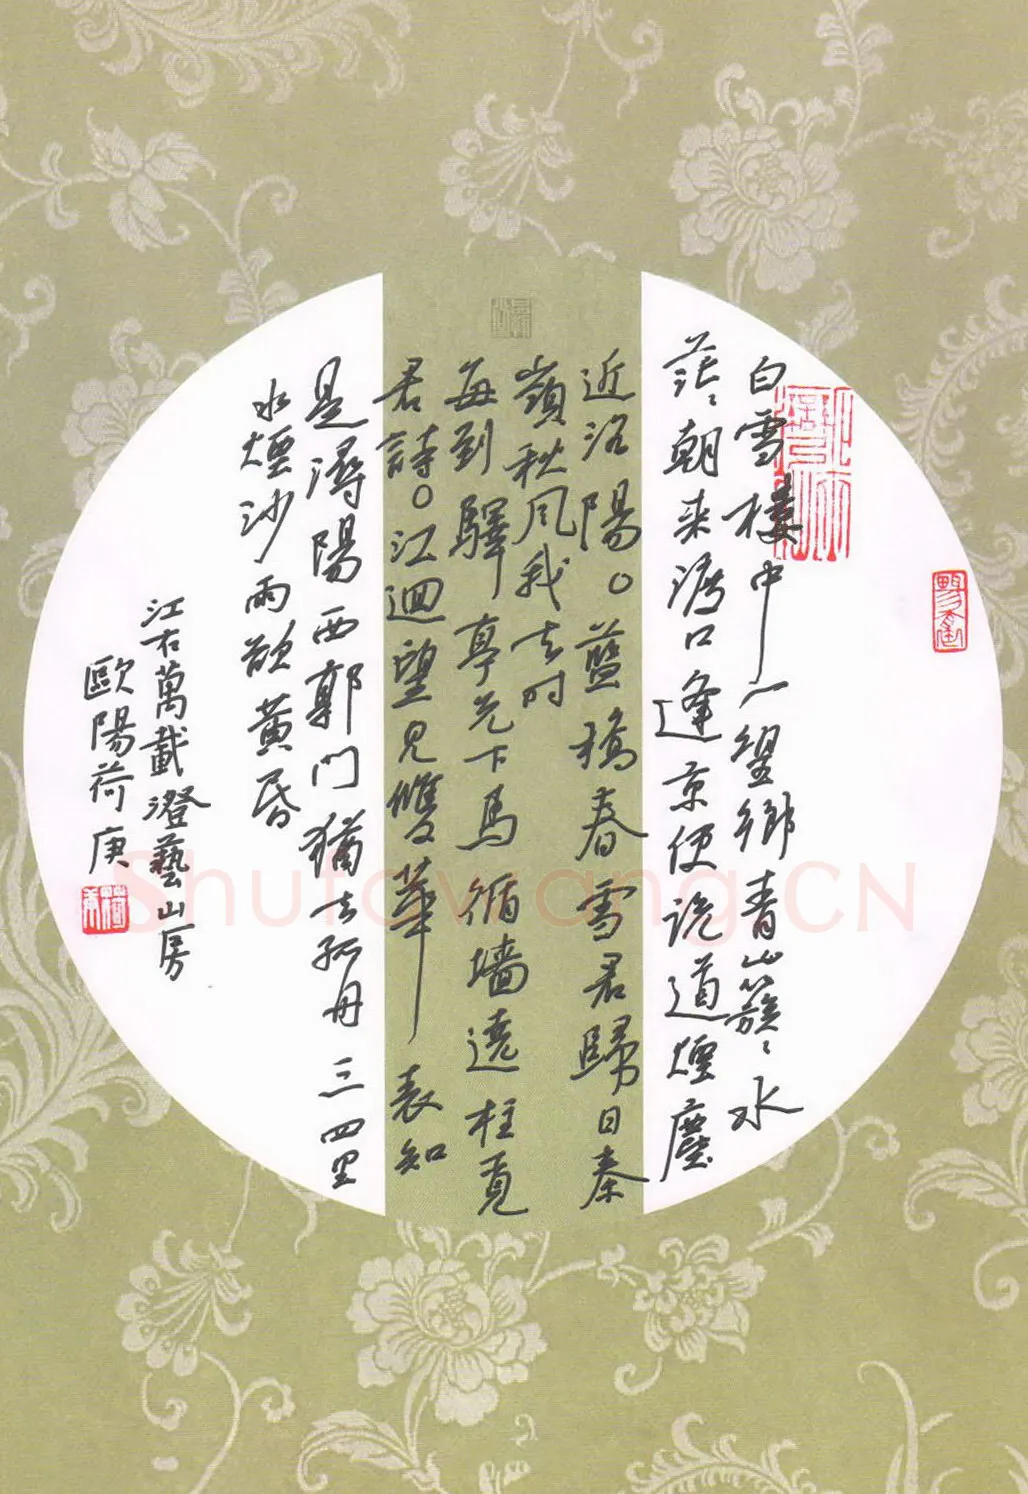 白雪樓中一望鄉青山簇〻水
茫〻朝来渡口逢京使説道煙塵
近洛陽。藍橋春雪君歸日秦
嶺秋風我去时
每到驛亭先下馬循墙遶柱覓
君詩。江迴望見雙華表知
是潯陽西郭門猶去孤舟三四里
水煙沙雨欲黄昏
江右萬載澄藝山房
歐陽荷庚
Shufawang.CN